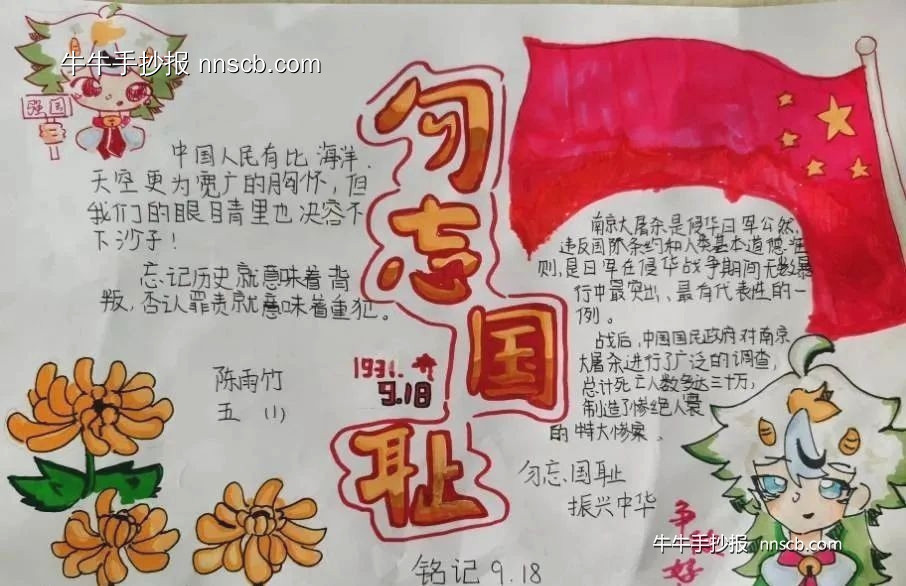 牛牛手抄报 nnscb.com
强国
中国人民有比海洋、
天空更为宽广的胸怀，但
我们的眼目青里也决容不
下沙子！
忘记历史就意味着背
叛，否认罪责就意味着重犯。
陈雨竹
五（1）
勿
忘
国
耻
1931.
9.18
南京大屠杀是侵华日军公然
违反国际条约和人类基本道德准
则，是日军在侵华战争期间无数暴
行中最突出、最有代表性的一
例。
战后，中国国民政府对南京
大屠杀进行了广泛的调查，
总计死亡人数多达三十万，
制造了惨绝人寰
的特大惨案。
勿忘国耻
振兴中华
争
好
牛牛手抄报 nnscb.com
铭记9.18